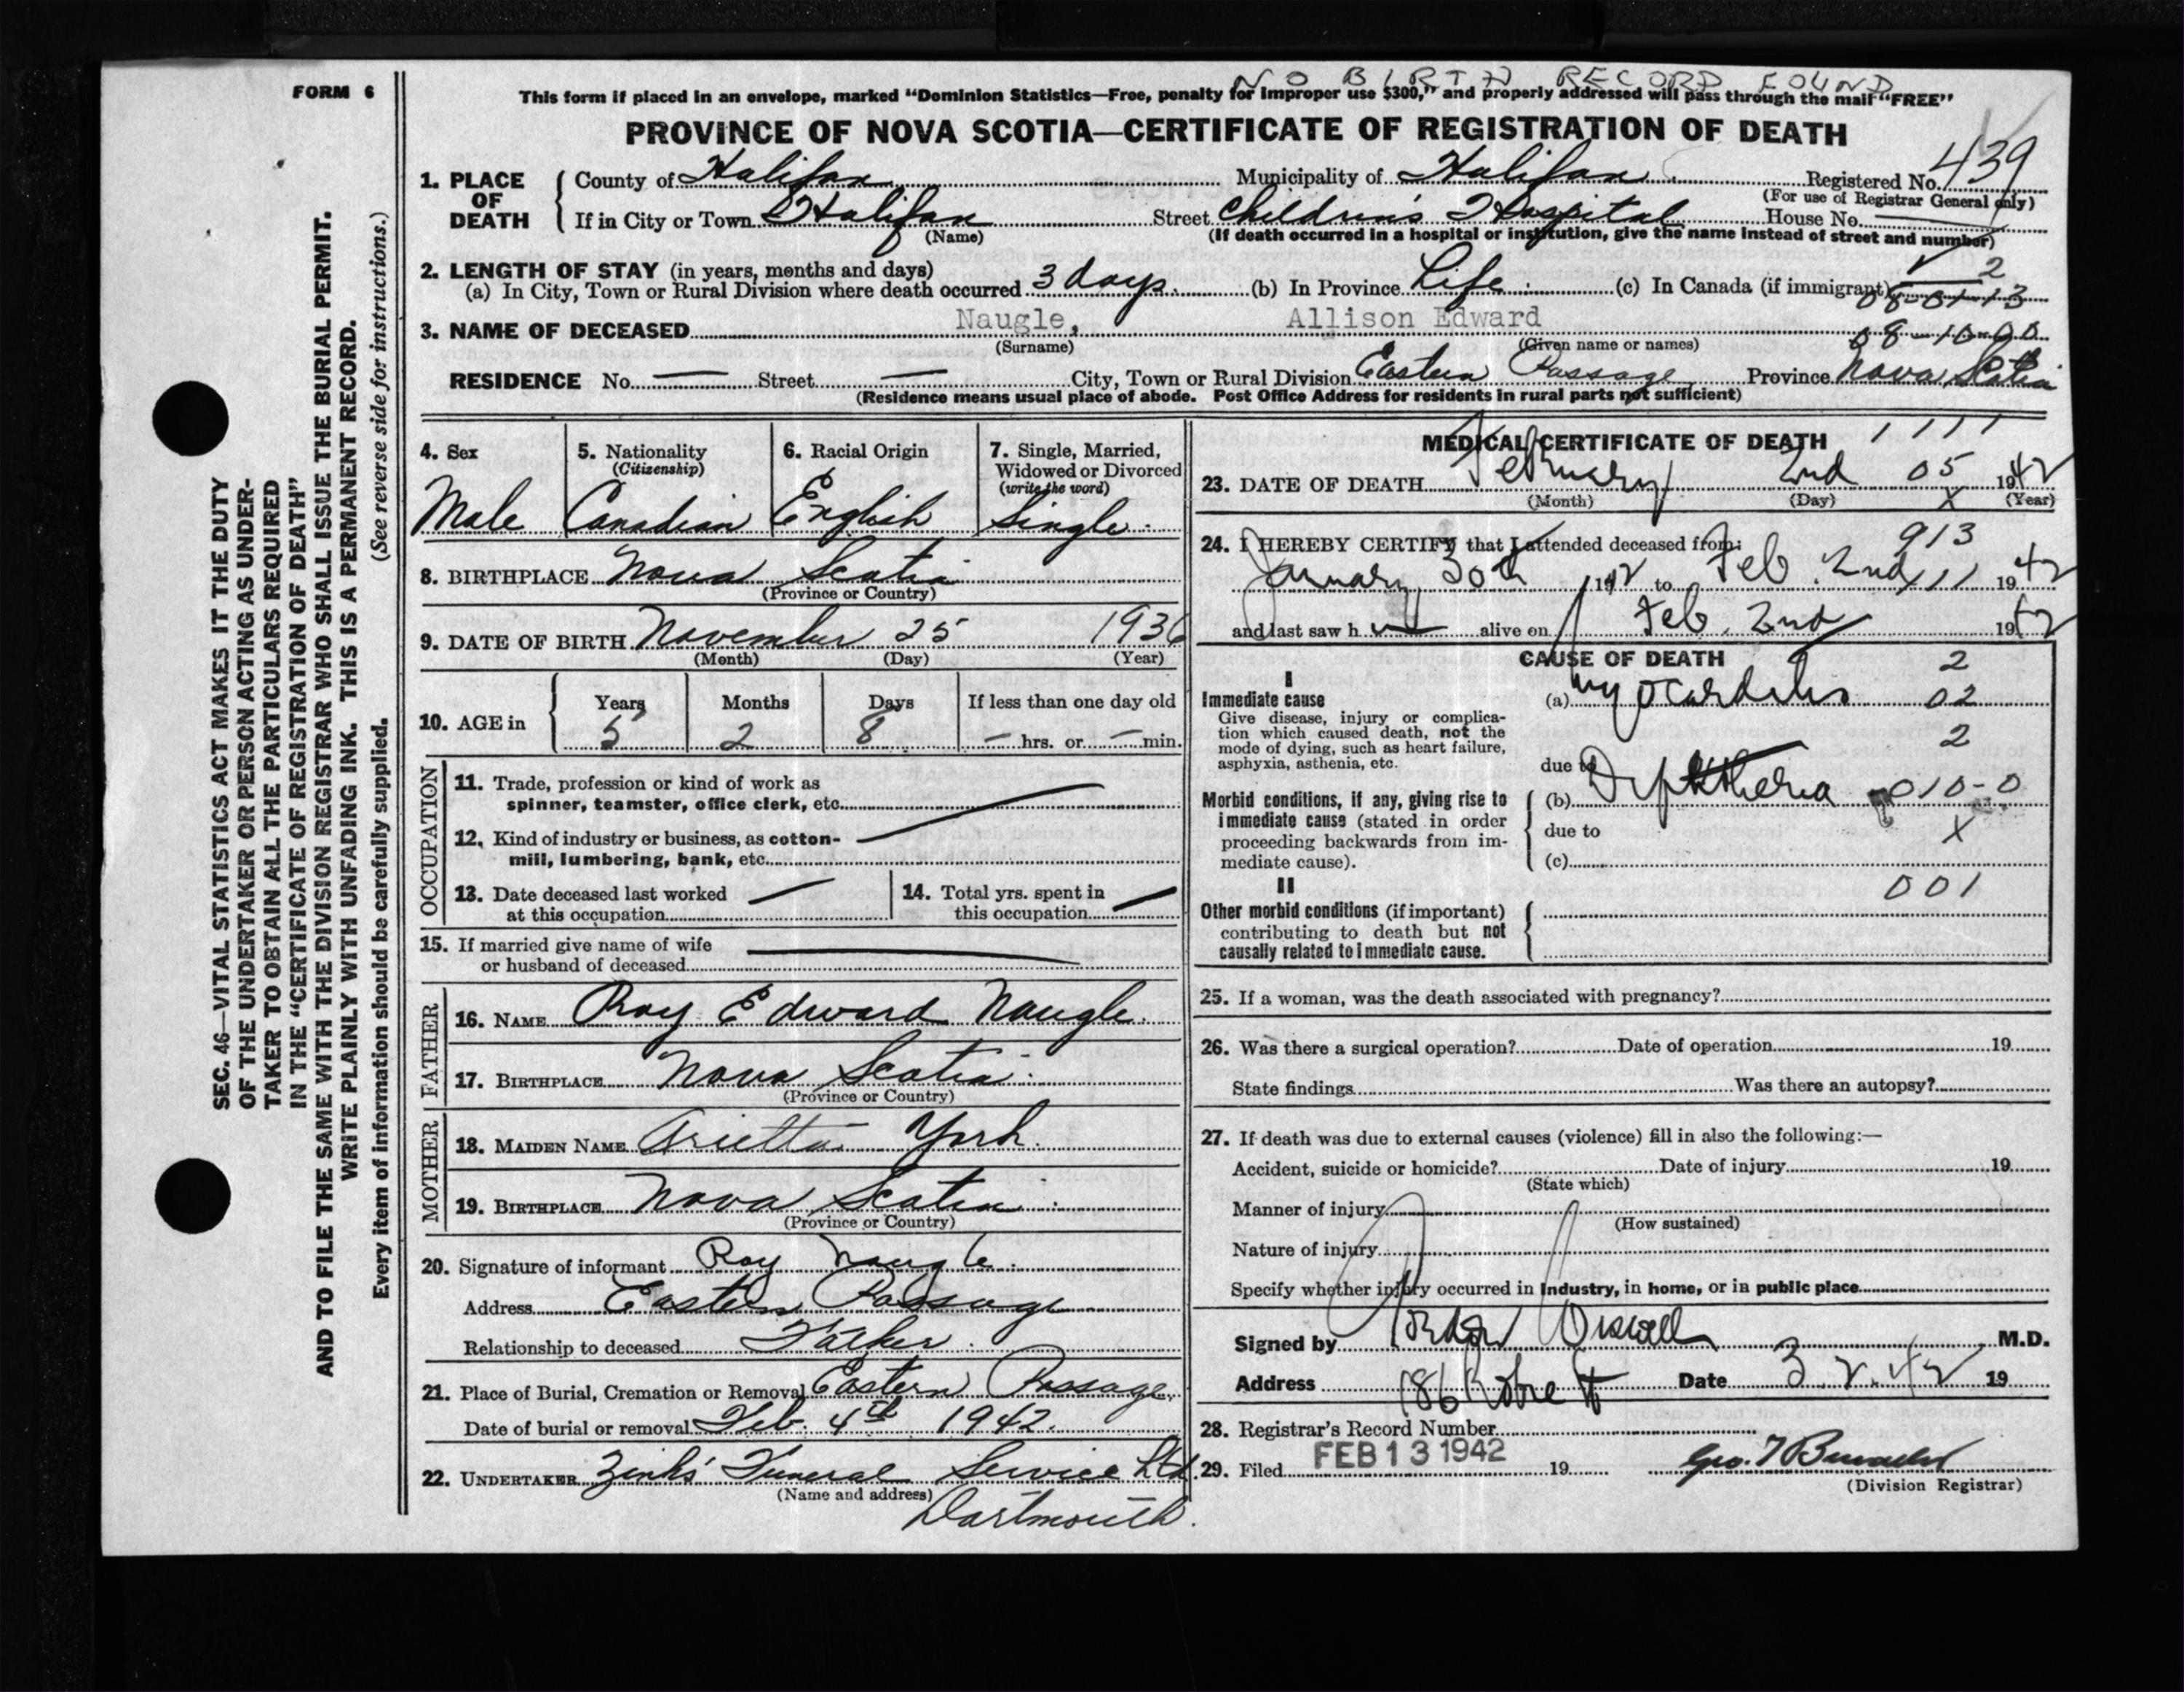 NO BIRTH RECORD FOUND
FORM 6
This form if placed in an envelope, marked "Dominion Statistics—Free, penalty for improper use $300," and properly addressed will pass through the mail "FREE"
PROVINCE OF NOVA SCOTIA—CERTIFICATE OF REGISTRATION OF DEATH
1. PLACE OF DEATH { County of Halifax Municipality of Halifax Registered No. 439
(For use of Registrar General only)
If in City or Town Halifax Street Children's Hospital House No. —
(Name) (If death occurred in a hospital or institution, give the name instead of street and number)
2. LENGTH OF STAY (in years, months and days) 2
(a) In City, Town or Rural Division where death occurred 3 days. (b) In Province Life. (c) In Canada (if immigrant)
3. NAME OF DECEASED Naugle, Allison Edward
(Surname) (Given name or names)
RESIDENCE No. — Street — City, Town or Rural Division Eastern Passage Province Nova Scotia
(Residence means usual place of abode. Post Office Address for residents in rural parts not sufficient)
4. Sex 5. Nationality 6. Racial Origin 7. Single, Married,
(Citizenship) Widowed or Divorced
(write the word)
Male Canadian English Single.
8. BIRTHPLACE Nova Scotia
(Province or Country)
9. DATE OF BIRTH November 25 1936
(Month) (Day) (Year)
10. AGE in { Years Months Days If less than one day old
5 2 8 — hrs. or — min.
OCCUPATION
11. Trade, profession or kind of work as
spinner, teamster, office clerk, etc.
12. Kind of industry or business, as cotton-
mill, lumbering, bank, etc.
13. Date deceased last worked — 14. Total yrs. spent in —
at this occupation this occupation
15. If married give name of wife
or husband of deceased
FATHER
16. NAME Roy Edward Naugle.
17. BIRTHPLACE Nova Scotia.
(Province or Country)
MOTHER
18. MAIDEN NAME Arietta York.
19. BIRTHPLACE Nova Scotia.
(Province or Country)
20. Signature of informant Roy Naugle.
Address Eastern Passage
Relationship to deceased Father.
21. Place of Burial, Cremation or Removal Eastern Passage,
Date of burial or removal Feb. 4th 1942.
22. UNDERTAKER Zinks' Funeral Service Ltd.
(Name and address)
Dartmouth.
MEDICAL CERTIFICATE OF DEATH 1111
23. DATE OF DEATH February 2nd 05 1942
(Month) (Day) X (Year)
24. I HEREBY CERTIFY that I attended deceased from: 913
January 30th 1942 to Feb. 2nd 111 1942
and last saw h alive on Feb. 2nd 1942
CAUSE OF DEATH 2
I
Immediate cause (a) Myocarditis 02
Give disease, injury or complica-
tion which caused death, not the 2
mode of dying, such as heart failure,
asphyxia, asthenia, etc. due to
Morbid conditions, if any, giving rise to (b) Diphtheria 010-0
immediate cause (stated in order due to X
proceeding backwards from im-
mediate cause). (c)
II 001
Other morbid conditions (if important)
contributing to death but not
causally related to immediate cause.
25. If a woman, was the death associated with pregnancy?
26. Was there a surgical operation? Date of operation 19
State findings Was there an autopsy?
27. If death was due to external causes (violence) fill in also the following:—
Accident, suicide or homicide? Date of injury 19
(State which)
Manner of injury
(How sustained)
Nature of injury
Specify whether injury occurred in Industry, in home, or in public place
Signed by M.D.
Address 186 Date 3.2.42 19
28. Registrar's Record Number
29. Filed FEB 13 1942 19 Geo. T
(Division Registrar)
SEC. 46—VITAL STATISTICS ACT MAKES IT THE DUTY
OF THE UNDERTAKER OR PERSON ACTING AS UNDER-
TAKER TO OBTAIN ALL THE PARTICULARS REQUIRED
IN THE "CERTIFICATE OF REGISTRATION OF DEATH"
AND TO FILE THE SAME WITH THE DIVISION REGISTRAR WHO SHALL ISSUE THE BURIAL PERMIT.
WRITE PLAINLY WITH UNFADING INK. THIS IS A PERMANENT RECORD.
Every item of information should be carefully supplied. (See reverse side for instructions.)